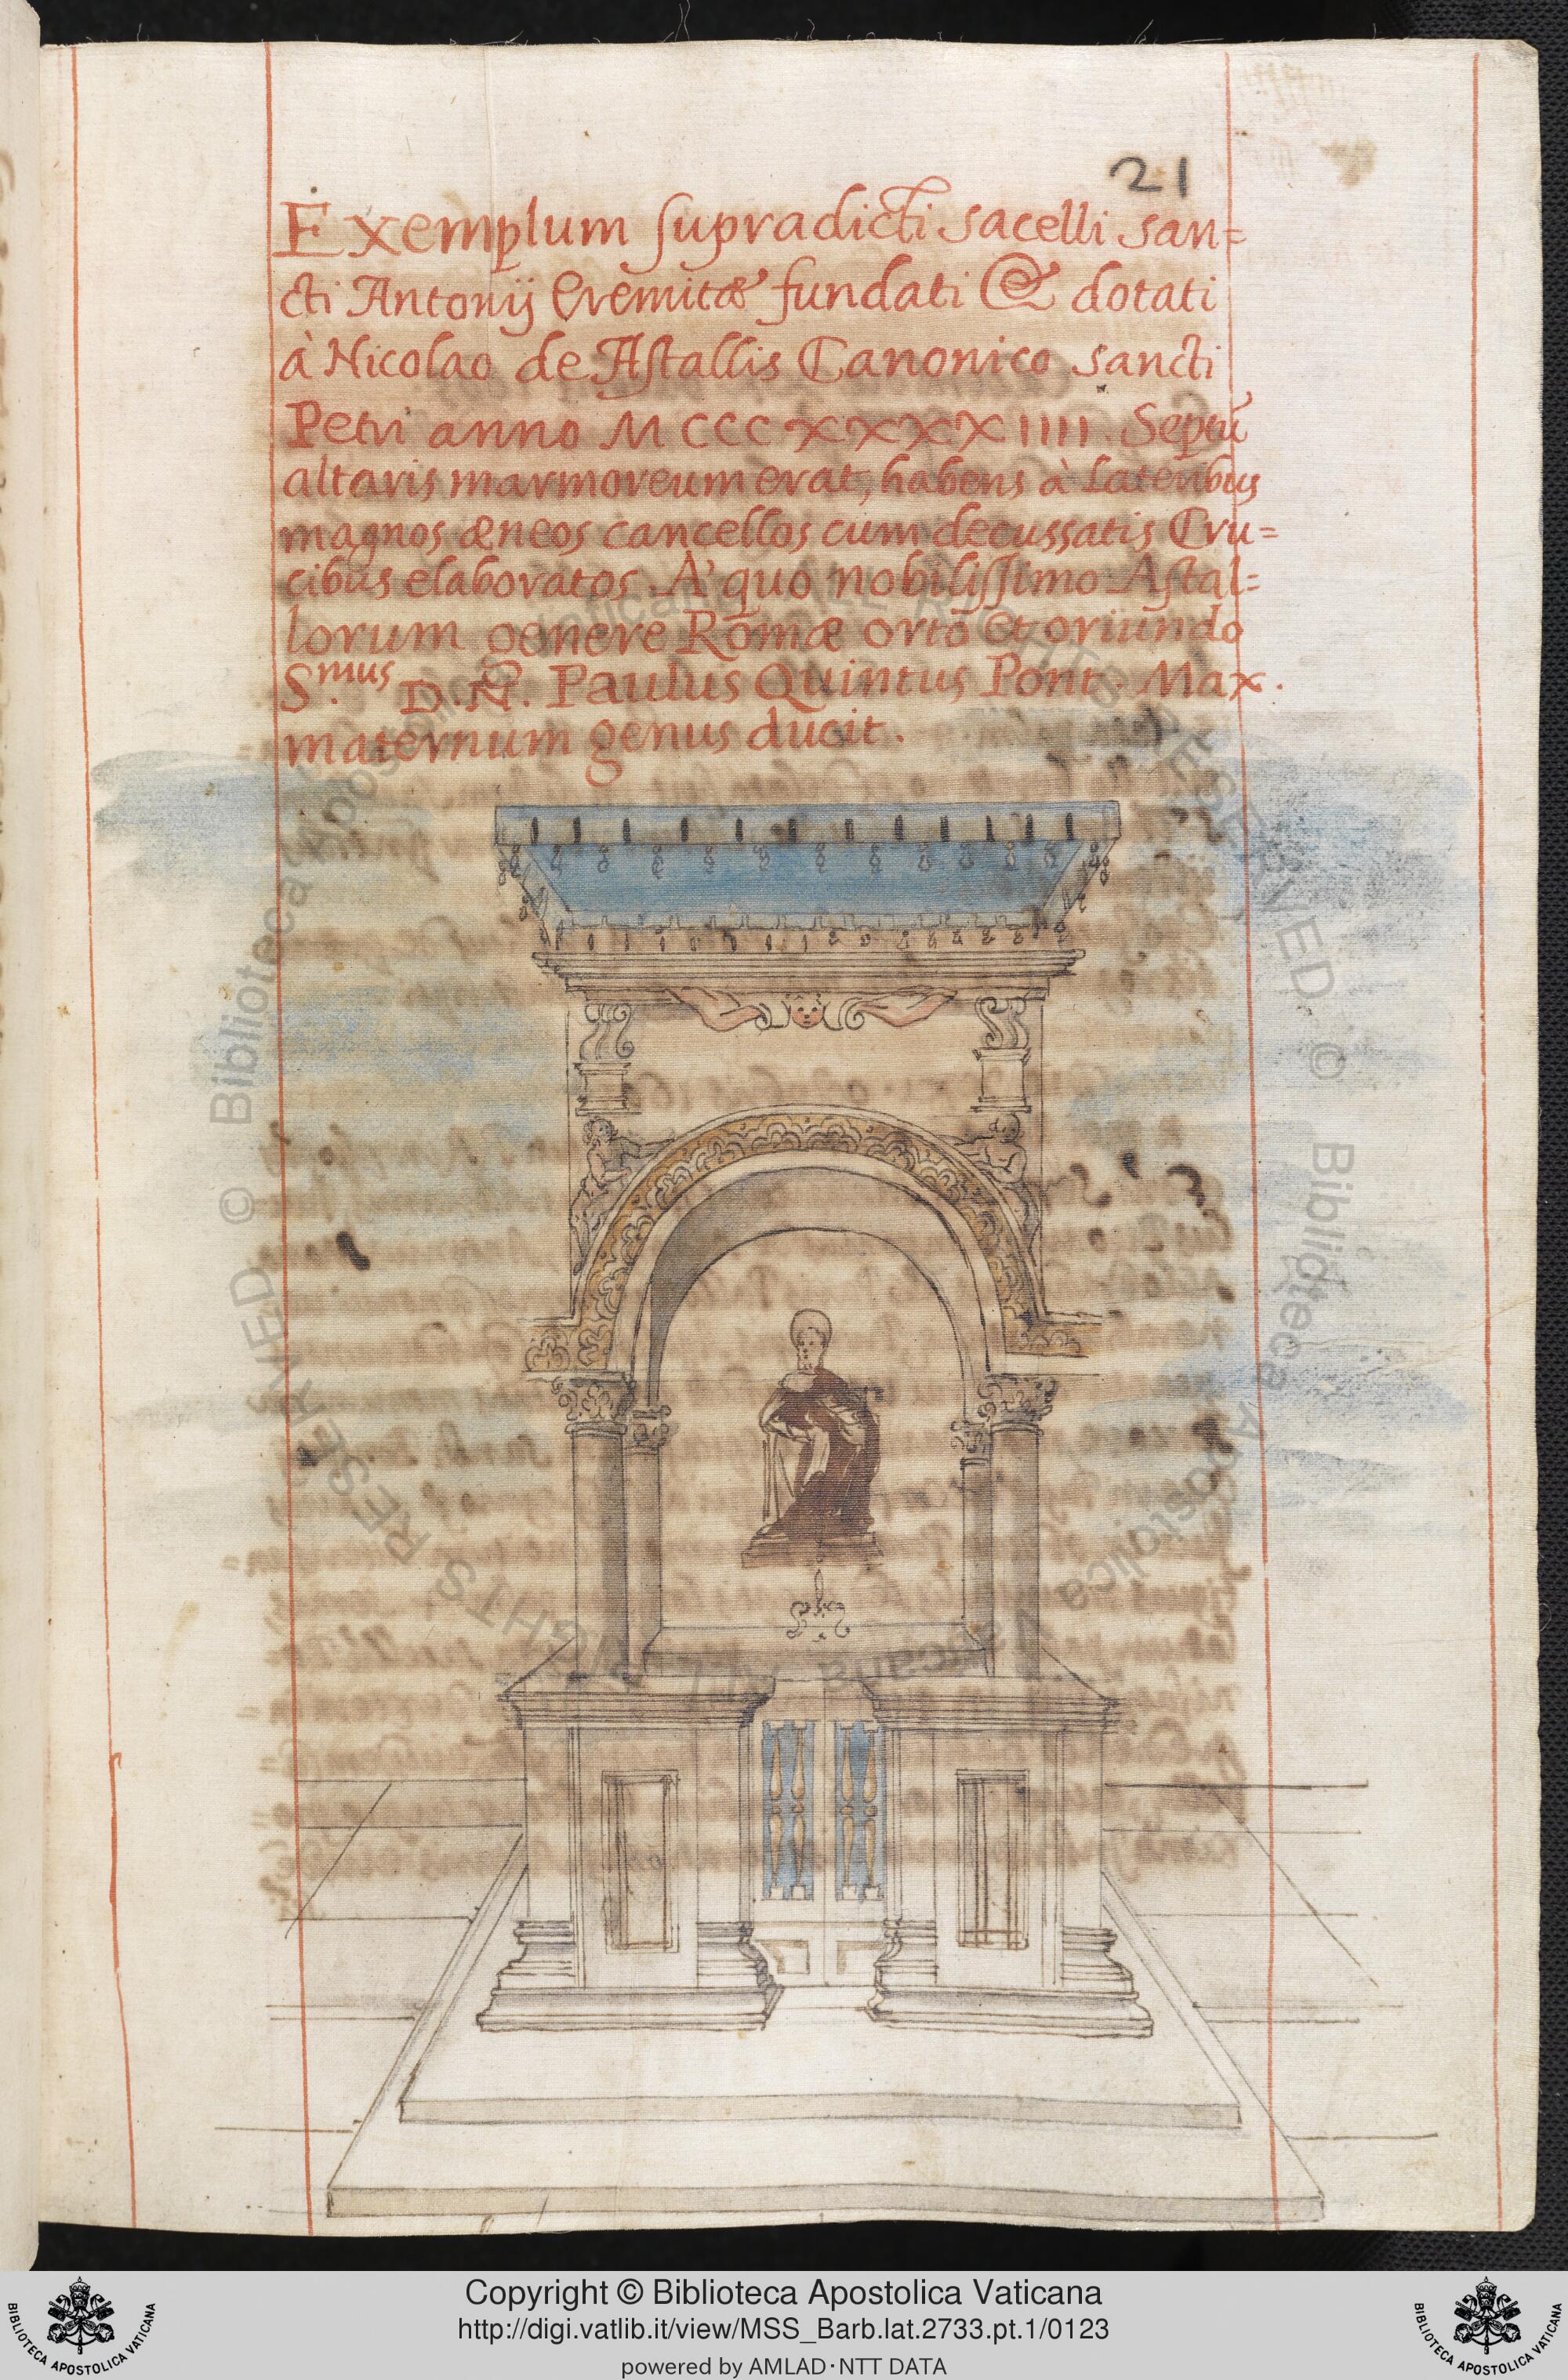 21
Exemplum supradicti sacelli san=
cti Antonij Eremitæ fundati & dotati
à Nicolao de Astallis Canonico sancti
Petri anno MCCCXXXXIIII. Septũ
altaris marmoreum erat, habens à lateribus
magnos æneos cancellos cum decussatis Cru=
cibus elaboratos. A' quo nobilissimo Astal=
lorum genere Romæ orto et oriundo
S.mus D.N. Paulus Quintus Pont. Max.
maternum genus ducit.
© Biblioteca Apostolica Vaticana ALL RIGHTS RESERVED
© Biblioteca Apostolica Vaticana ALL RIGHTS RESERVED
Copyright © Biblioteca Apostolica Vaticana
http://digi.vatlib.it/view/MSS_Barb.lat.2733.pt.1/0123
powered by AMLAD·NTT DATA
BIBLIOTECA APOSTOLICA VATICANA
BIBLIOTECA APOSTOLICA VATICANA